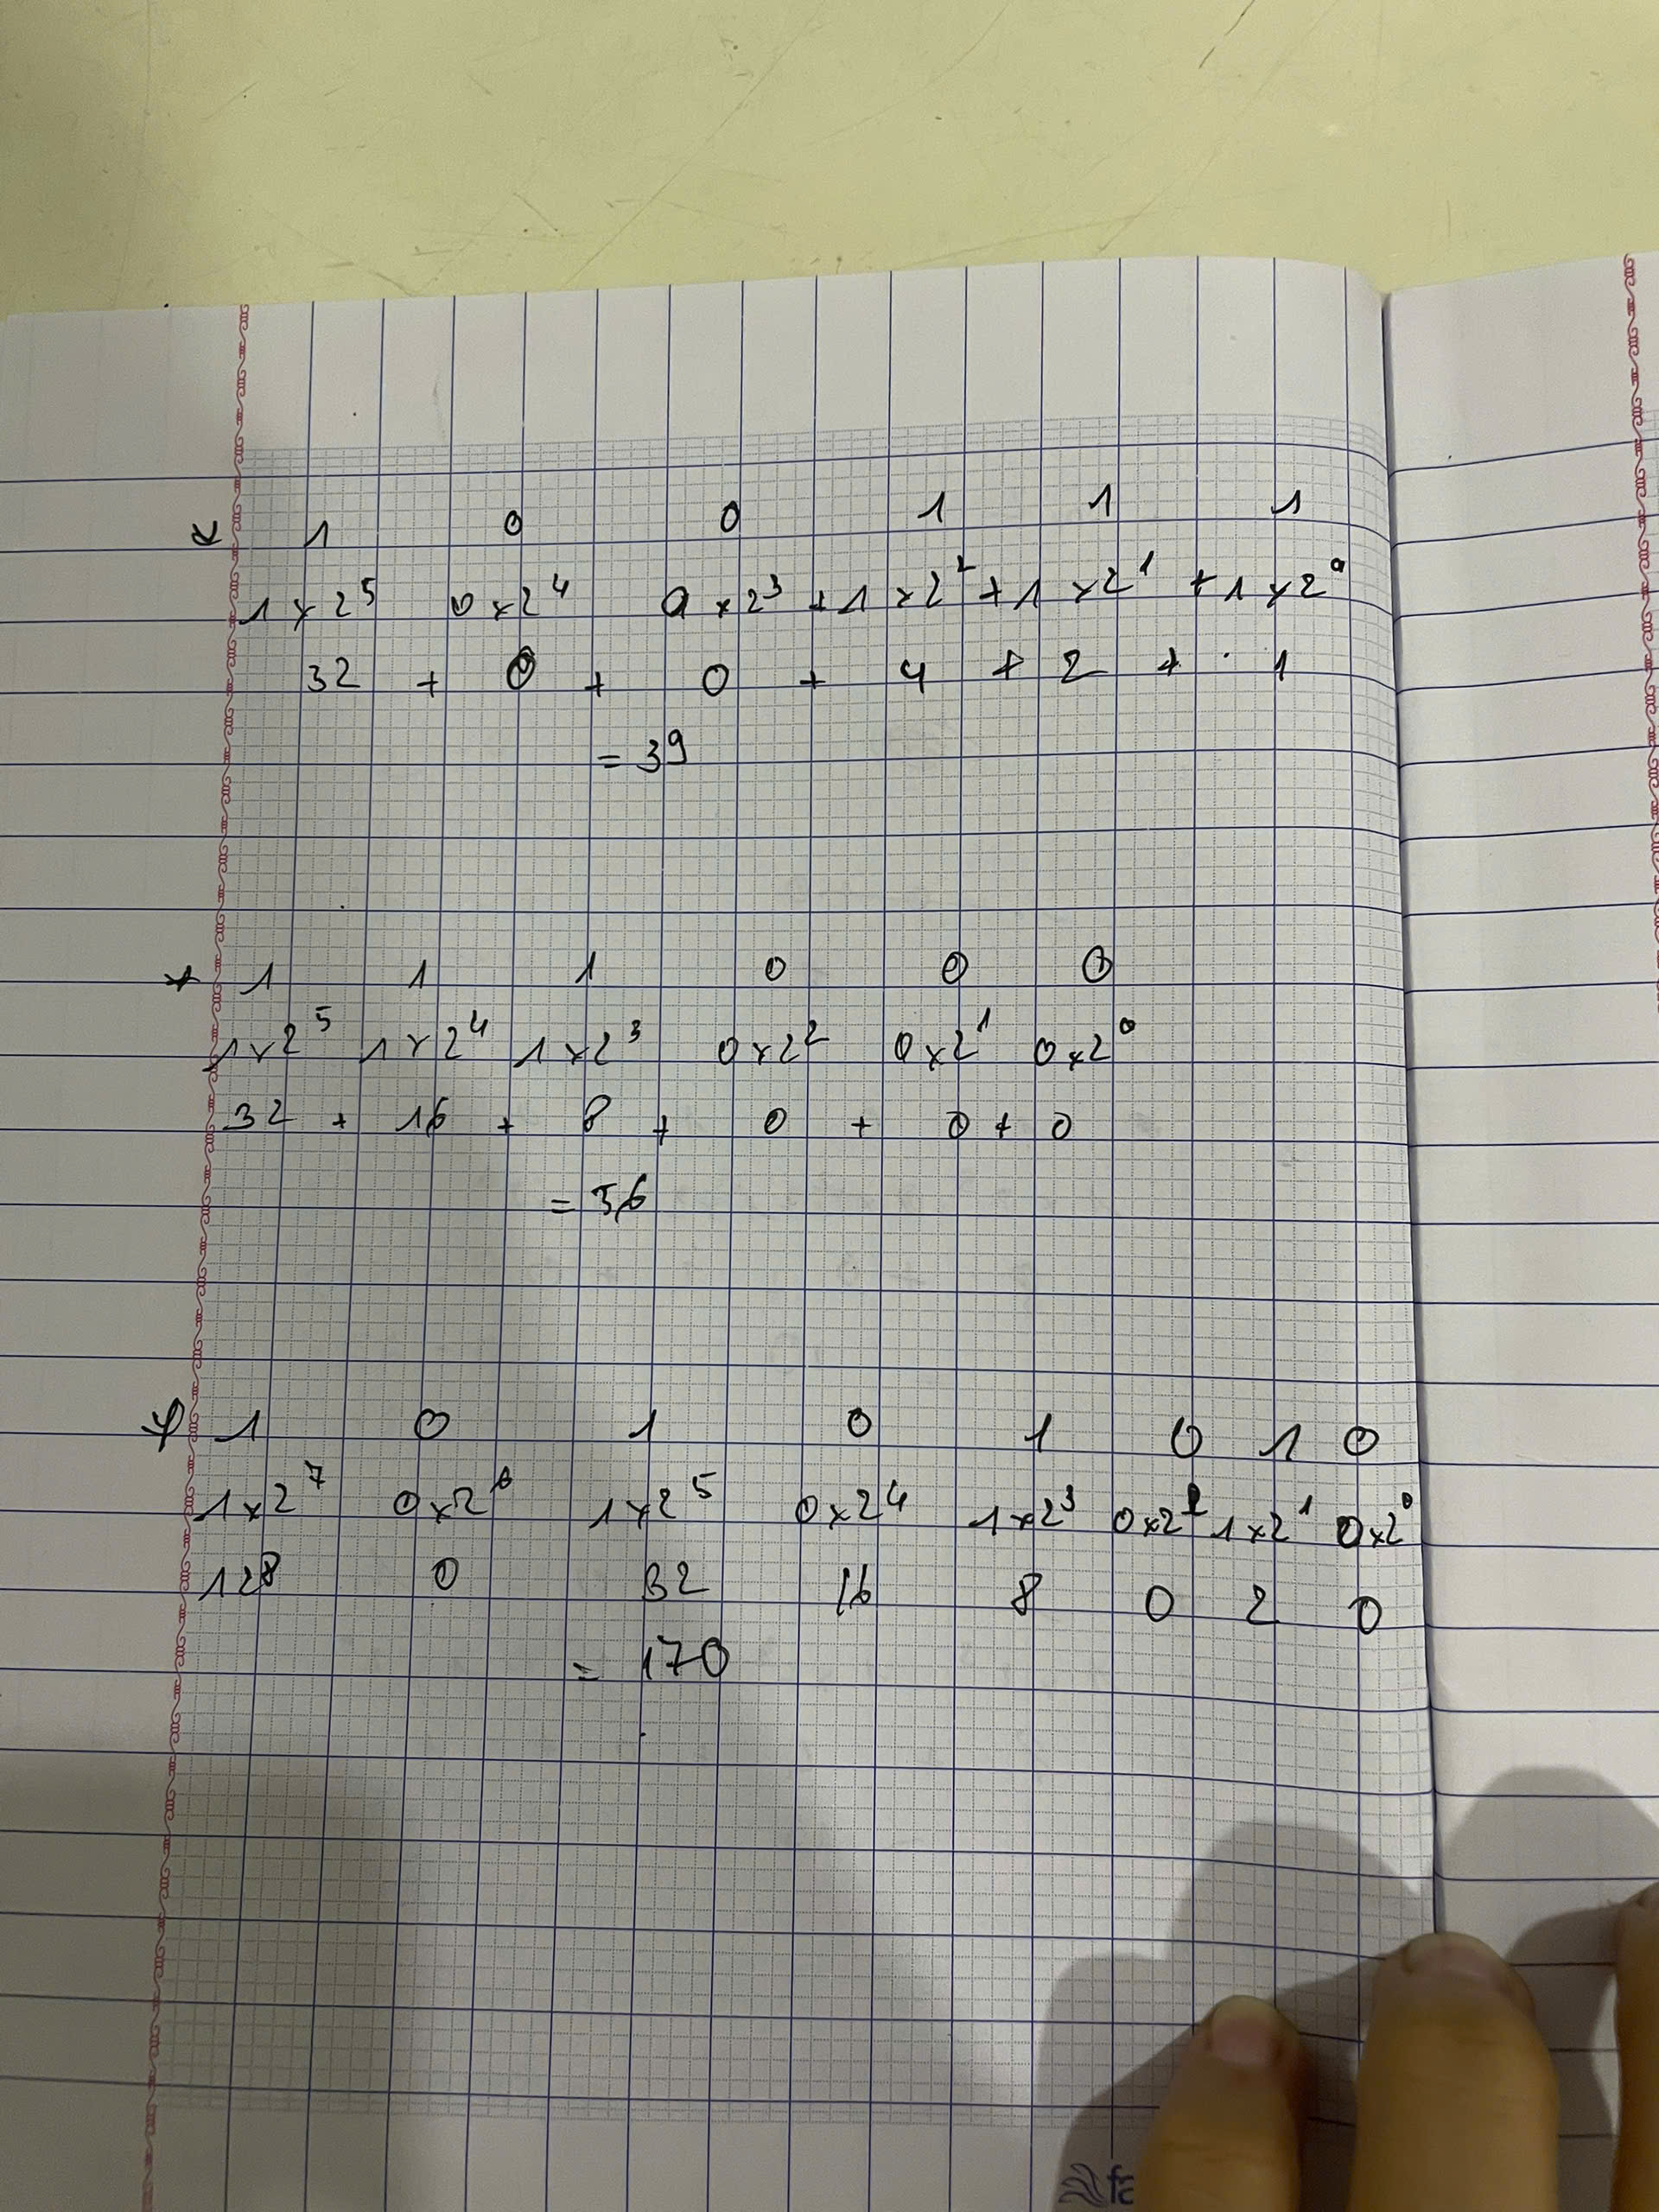 * 1 0 0 1 1 1
1 × 2⁵ 0 × 2⁴ 0 × 2³ + 1 × 2² + 1 × 2¹ + 1 × 2⁰
32 + 0 + 0 + 4 + 2 + 1
= 39
* 1 1 1 0 0 0
1 × 2⁵ 1 × 2⁴ 1 × 2³ 0 × 2² 0 × 2¹ 0 × 2⁰
32 + 16 + 8 + 0 + 0 + 0
= 56
* 1 0 1 0 1 0 1 0
1 × 2⁷ 0 × 2⁶ 1 × 2⁵ 0 × 2⁴ 1 × 2³ 0 × 2² 1 × 2¹ 0 × 2⁰
128 0 32 16 8 0 2 0
= 170